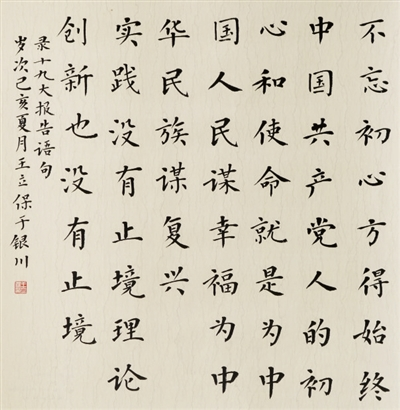 不忘初心方得始终
中国共产党人的初
心和使命就是为中
国人民谋幸福为中
华民族谋复兴
实践没有止境理论
创新也没有止境
录十九大报告语句
岁次己亥夏月王立保于银川